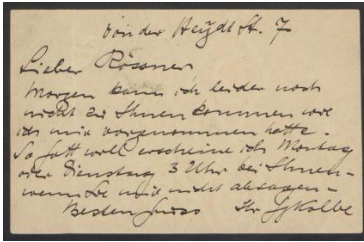 von der Heydt St. 7
Lieber Rössner
Morgen kann ich leider noch
nicht zu Ihnen kommen wie
ich mir vorgenommen hatte.
So Gott will erscheine ich Montag
oder Dienstag 3 Uhr bei Ihnen -
wenn Sie mir nicht absagen -
Besten Gruss Ihr GKolbe